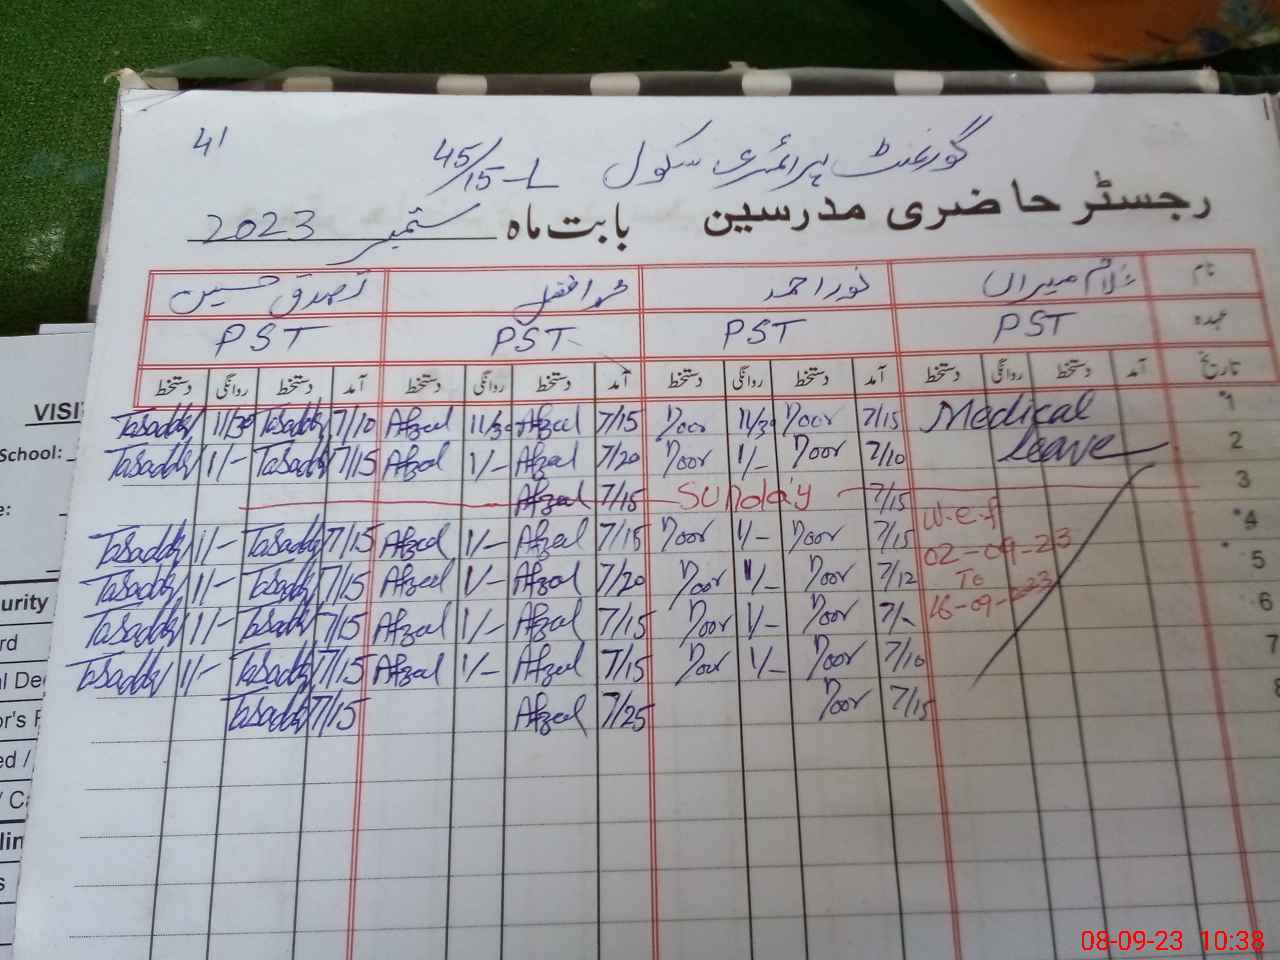 41
گورنمنٹ پرائمری سکول 45/15-L
رجسٹر حاضری مدرسین بابت ماہ ستمبر 2023
نام غلام میراں نور احمد محمد افضل تصدق حسین
عہدہ PST PST PST PST
تاریخ آمد دستخط روانگی دستخط آمد دستخط روانگی دستخط آمد دستخط روانگی دستخط آمد دستخط روانگی دستخط
1 Medical 7/15 Noor 11/30 Noor 7/15 Afzal 11/30 Afzal 7/10 Tasaddq 11/30 Tasaddq
2 leave 7/10 Noor 1/- Noor 7/20 Afzal 1/- Afzal 7/15 Tasaddq 1/- Tasaddq
3 7/15 Sunday 7/15 Afzal
4 w.e.f 7/15 Noor 1/- Noor 7/15 Afzal 1/- Afzal 7/15 Tasaddq 1/- Tasaddq
5 02-09-23 7/12 Noor 1/- Noor 7/20 Afzal 1/- Afzal 7/15 Tasaddq 1/- Tasaddq
To
6 16-09-2023 7/- Noor 1/- Noor 7/15 Afzal 1/- Afzal 7/15 Tasaddq 1/- Tasaddq
7 7/10 Noor 1/- Noor 7/15 Afzal 1/- Afzal 7/15 Tasaddq 1/- Tasaddq
8 7/15 Noor 7/25 Afzal 7/15 Tasaddq
VISI
School:
e:
urity
rd
al De
or's
ed /
/ C
lin
s
08-09-23 10:38